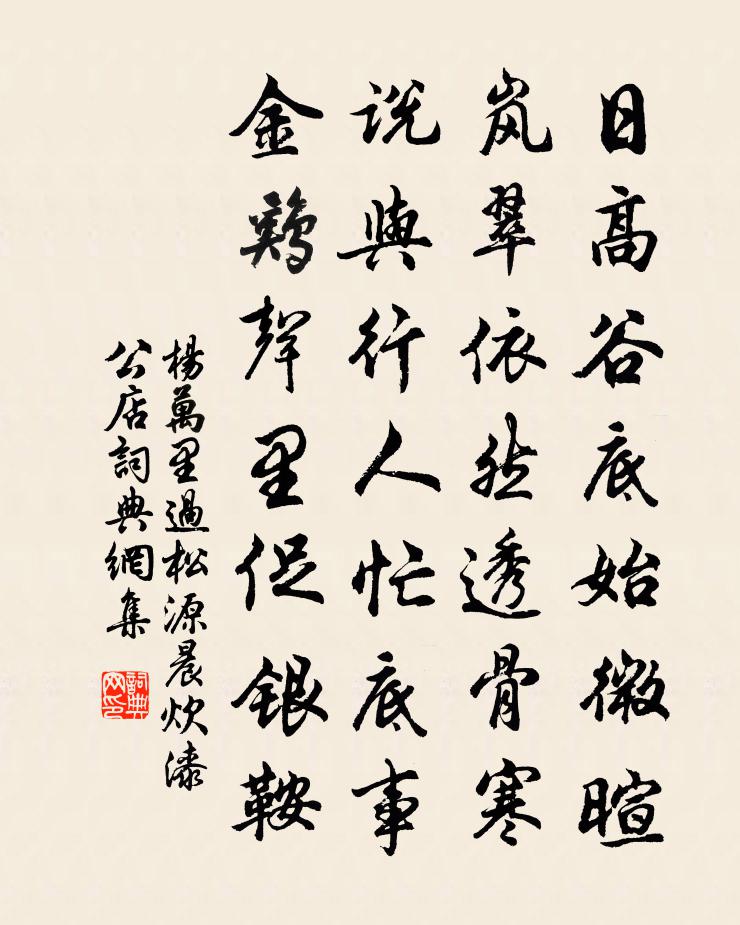 日高谷底始微暄
岚翠依然透骨寒
説與行人忙底事
金鷄聲里促銀鞍
楊萬里過松源晨炊漆
公店詞典網集
詞典
网印